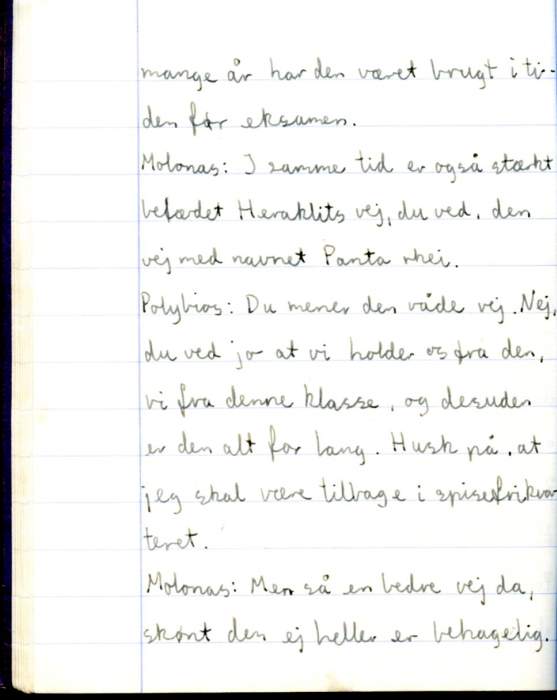 mange år har den været brugt i ti-
den før eksamen.
Molonas: I samme tid er også stærkt
befærdet Heraklits vej, du ved, den
vej med navnet Panta rhei.
Polybios: Du mener den våde vej. Nej,
du ved jo at vi holder os fra den,
vi fra denne klasse, og desuden
er den alt for lang. Husk på, at
jeg skal være tilbage i spisefrikvar
teret.
Molonas: Men så en bedre vej da,
skønt den ej heller er behagelig.